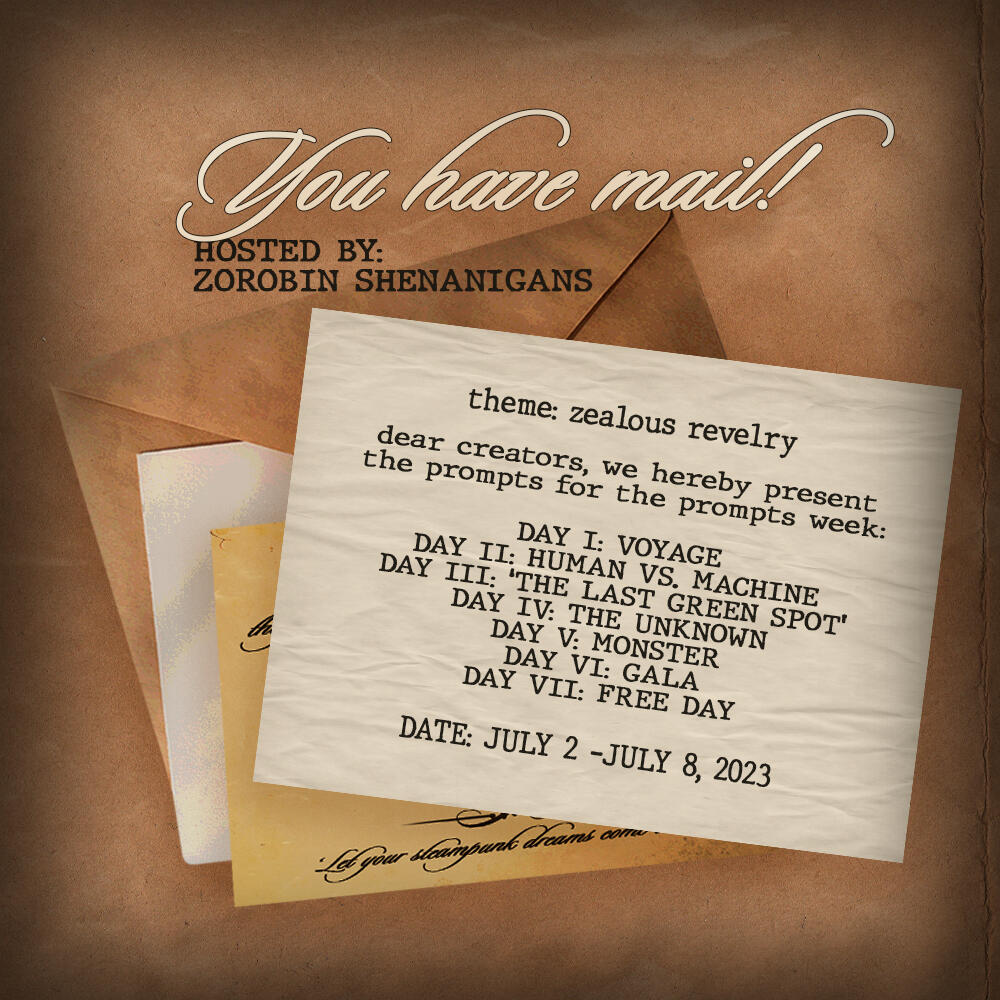 You have mail!
HOSTED BY:
ZOROBIN SHENANIGANS
theme: zealous revelry
dear creators, we hereby present
the prompts for the prompts week:
DAY I: VOYAGE
DAY II: HUMAN VS. MACHINE
DAY III: 'THE LAST GREEN SPOT'
DAY IV: THE UNKNOWN
DAY V: MONSTER
DAY VI: GALA
DAY VII: FREE DAY
DATE: JULY 2 -JULY 8, 2023
'Let your steampunk dreams come